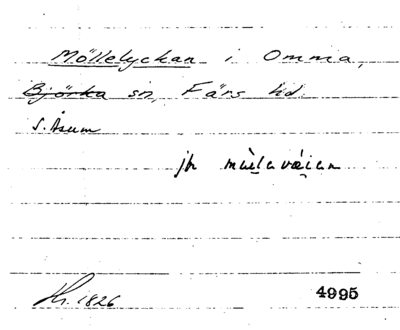 Möllelyckan i Omma,
Björka sn, Färs hd.
S. Åsum
jfr
Kr. 1826 4995